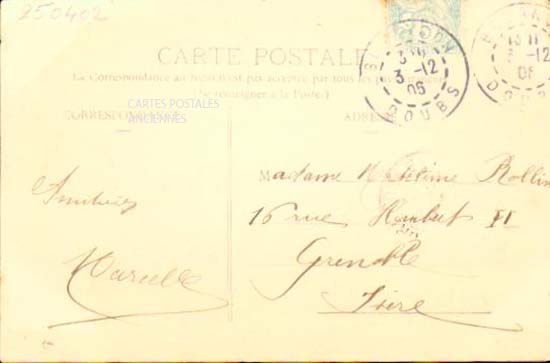 250402
CARTE POSTALE
La Correspondance au recto n'est pas acceptée par tous les pays
(Se renseigner à la Poste)
CARTES POSTALES
ANCIENNES
CORRESPONDANCE
ADRESSE
3 -12
06
DOUBS
Amitiés
Marcelle
Madame Rollin
16 rue Humbert II
Grenoble
Isère